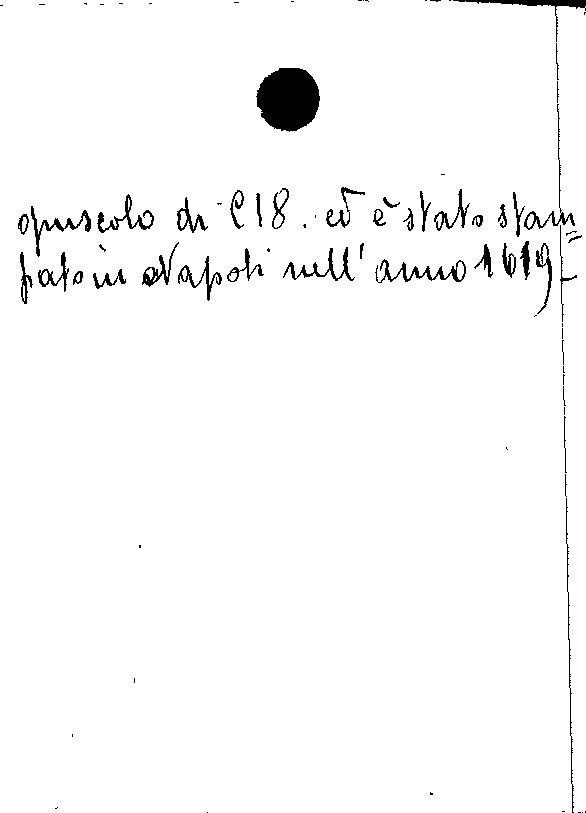 opuscolo di C 18. ed è stato stam=
pato in Napoli nell' anno 1619-